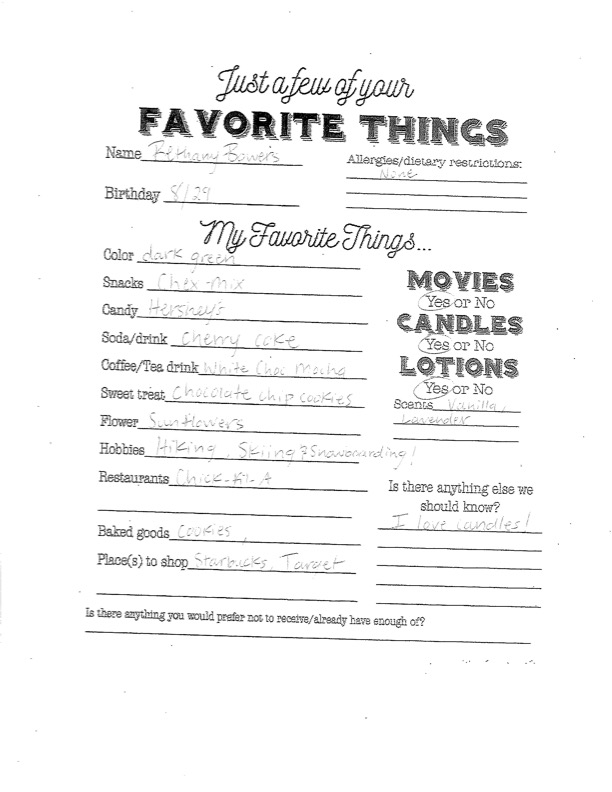 Just a few of your
FAVORITE THINGS
Name Bethany Bowers
Allergies/dietary restrictions:
None
Birthday 8/29
My Favorite Things...
Color dark green
Snacks Chex-mix
Candy Hershey's
Soda/drink Cherry coke
Coffee/Tea drink White Choc Mocha
Sweet treat Chocolate chip cookies
Flower Sunflowers
Hobbies Hiking, Skiing & Snowboarding!
Restaurants Chick-fil-A
Baked goods Cookies,
Place(s) to shop Starbucks, Target
MOVIES
Yes or No
CANDLES
Yes or No
LOTIONS
Yes or No
Scents Vanilla,
Lavender
Is there anything else we
should know?
I love candles!
Is there anything you would prefer not to receive/already have enough of?